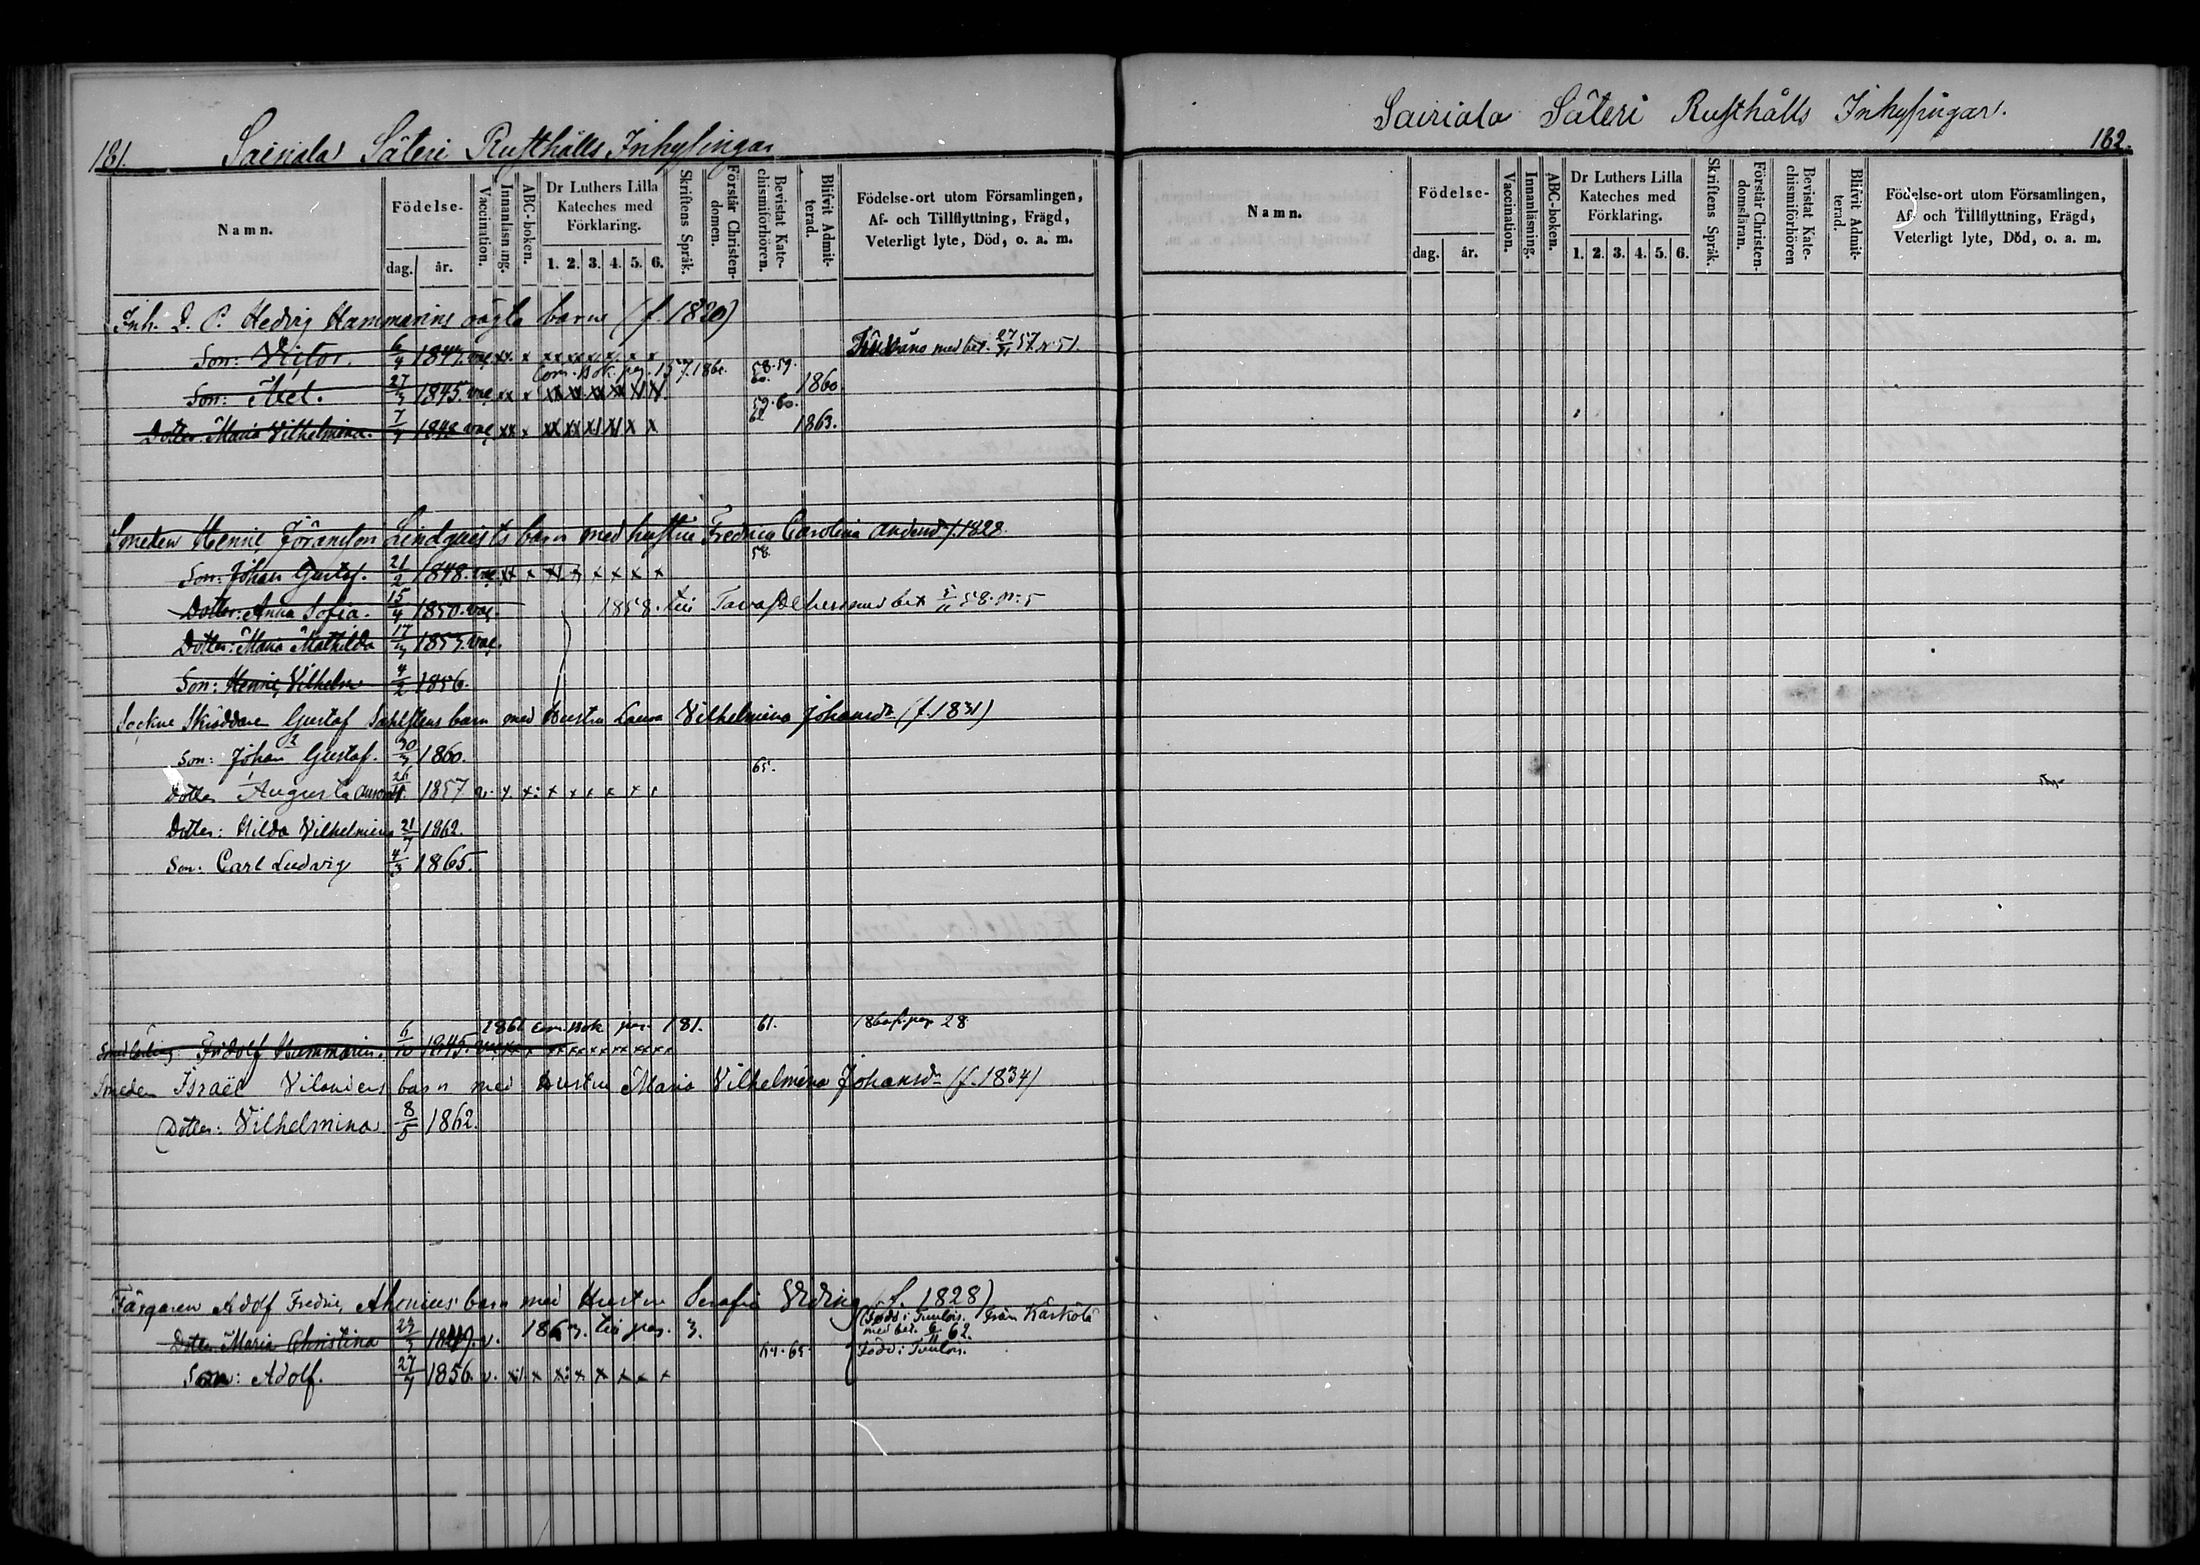 181. Sairiala Säteri Rusthålls Inhysingar
Namn. Födelse- dag. år. Vaccination. Innanläsning. ABC-boken. Dr Luthers Lilla Kateches med Förklaring. 1. 2. 3. 4. 5. 6. Skriftens Språk. Förstår Christendomen. Bevistat Katechismiförhören. Blifvit Admitterad. Födelse-ort utom Församlingen, Af- och Tillflyttning, Frägd, Veterligt lyte, Död, o. a. m.
Inh. D. P. Hedvig Hammarins oägta barn (f. 1820)
Son: Victor. 6/4 1847. vac. xx x xx xx x x x x med bet. 27/11 57 n: 51.
Com. Bok. pag. 157. 1861. 58. 59. 60.
Son: Axel. 27/3 1845. vac xx x xx xx xx xx xx xx 1860.
59. 60. 62
Dotter: Maria Vilhelmina. 7/7 1848 vac xx x xx xx xx xx x x 1863.
Smeden Henric Jöransson Lindqvists barn med hustru Fredrica Carolina Andersdr f. 1828.
58.
Son: Johan Gustaf. 21/2 1848. vac. xx x x x x x x x
Dotter: Anna Sofia. 15/4 1850. vac. 1858. till Tavastehus med bet 5/11 58. n: 5
Dotter: Maria Mathilda 17/3 1853. vac.
Son: Henric Vilhelm 4/2 1856.
Sockne Skräddare Gustaf Sahlstens barn med Hustru Laura Vilhelmina Johansdr (f. 1831)
Son: Johan Gustaf. 30/3 1860.
65.
Dotter Augusta 26 1857 v. x. x: x x x x x x
Dotter: Hilda Vilhelmina 21/7 1862.
Son: Carl Ludvig 4/3 1865.
1861 Com. Bok pag. 181. 61. 1860 fr. pag. 28.
Smedlärling: Fridolf Hammarin. 6/10 1845. vac xx x xx xx xx xx xx xx
Smeden Israël Vilanders barn med Hustru Maria Vilhelmina Johansdr (f. 1834)
Dotter: Vilhelmina 8/5 1862.
Färgaren Adolf Fredric Ahenius barn med Hustru Serafia (f. 1828)
Född i Tuulois. Från Kärkölä med bet. 6/11 62.
Dotter Maria Christina 29/3 1849. v. 1863. till pag. 3.
64. 65. Född i Tuulois.
Son: Adolf. 27/7 1856. v. x: x x: x x x x x
Sairiala Säteri Rusthålls Inhysingar.
182.
Namn. Födelse- dag. år. Vaccination. Innanläsning. ABC-boken. Dr Luthers Lilla Kateches med Förklaring. 1. 2. 3. 4. 5. 6. Skriftens Språk. Förstår Christendomsläran. Bevistat Katechismiförhören Blifvit Admitterad. Födelse-ort utom Församlingen, Af- och Tillflyttning, Frägd, Veterligt lyte, Död, o. a. m.